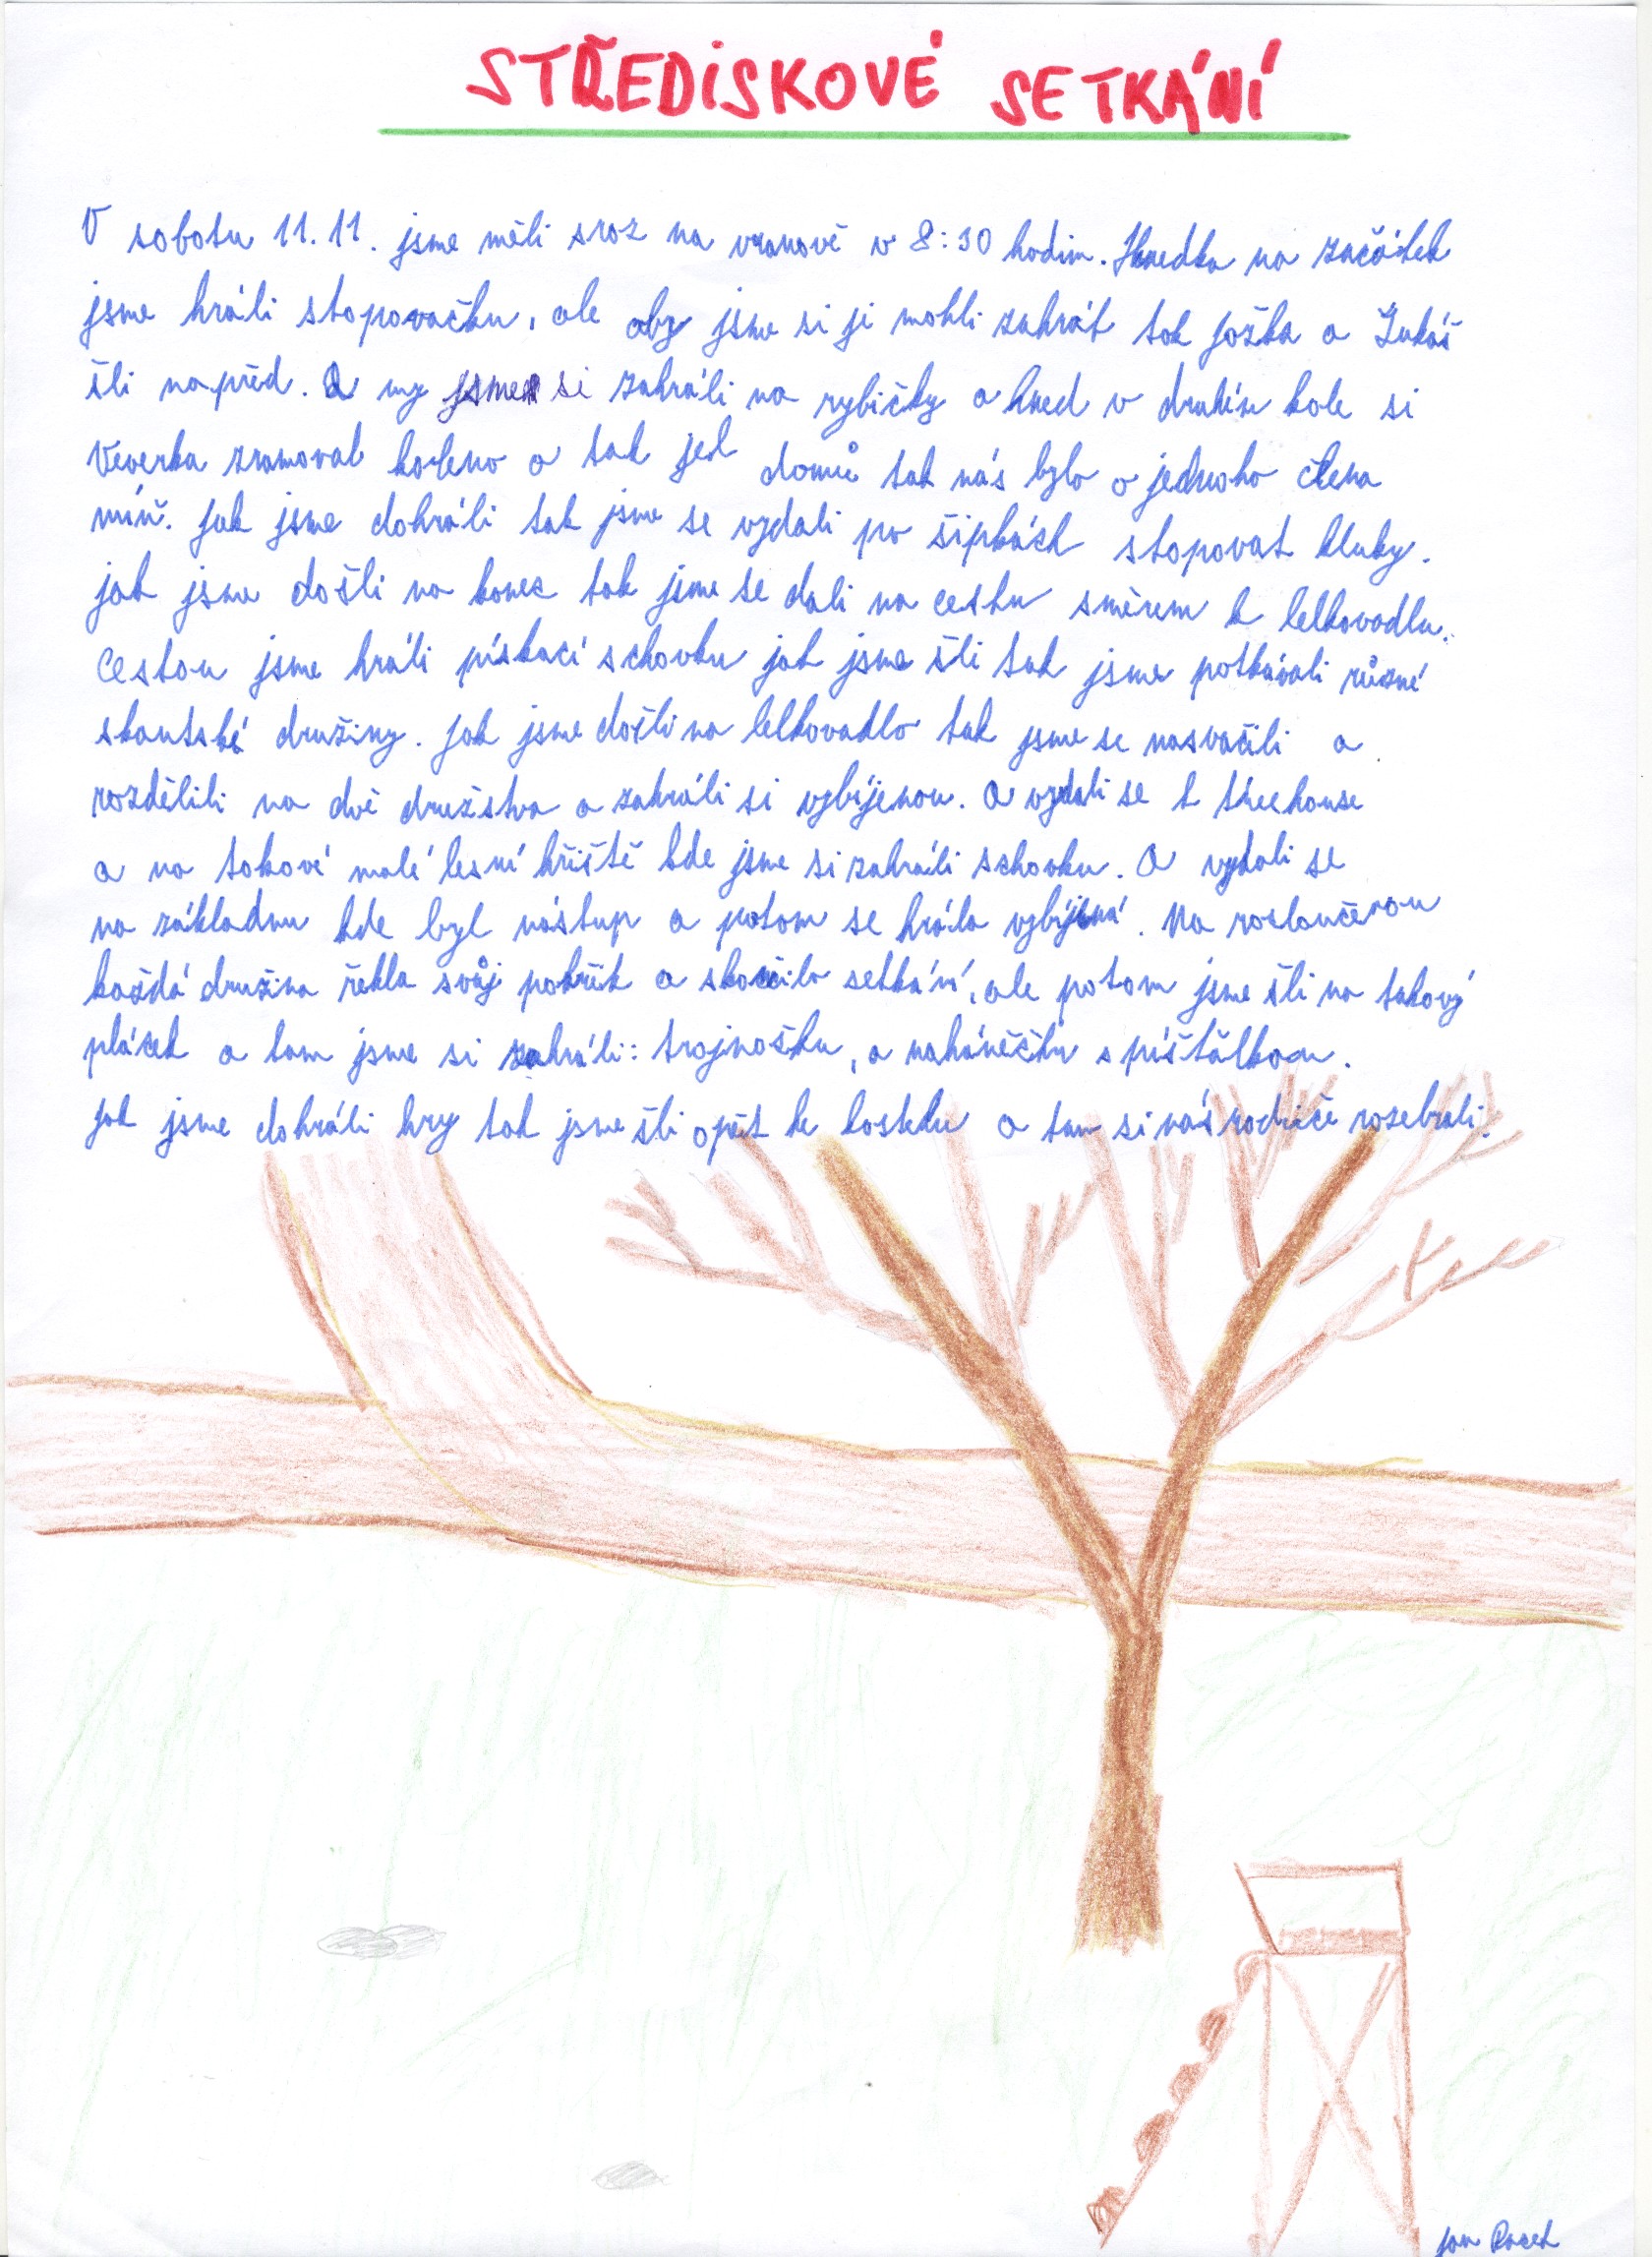 STŘEDISKOVÉ SETKÁNÍ
V sobotu 11.11. jsme měli sraz na vranově v 8:30 hodin. Hnedka na začátek
jsme hráli stopovačku, ale aby jsme si ji mohli zahrát tak Jožka a Lukáš
šli napřed. A my jsme si zahráli na rybičky a hned v druhém kole si
Veverka zramoval koleno a tak jel domů tak nás bylo o jednoho člena
míň. Jak jsme dohráli tak jsme se vydali po šipkách stopovat kluky.
jak jsme došli na konec tak jsme se dali na cestu směrem k lelkovadlu.
Cestou jsme hráli pískací schovku jak jsme šli tak jsme potkávali různé
skautské družiny. Jak jsme došli na lelkovadlo tak jsme se nasvačili a
rozdělili na dvě družstva a zahráli si vybíjenou. A vydali se k threehouse
a na takové malé lesní hřiště kde jsme si zahráli schovku. A vydali se
na základnu kde byl nástup a potom se hrála vybíjená. Na rozloučenou
každá družina řekla svůj pokřik a skončilo setkání, ale potom jsme šli na takový
plácek a tam jsme si zahráli: trojnožku, a naháněčku s píšťalkou.
Jak jsme dohráli hry tak jsme šli opět ke kostelu a tam si nás rodiče rozebrali.
Jan